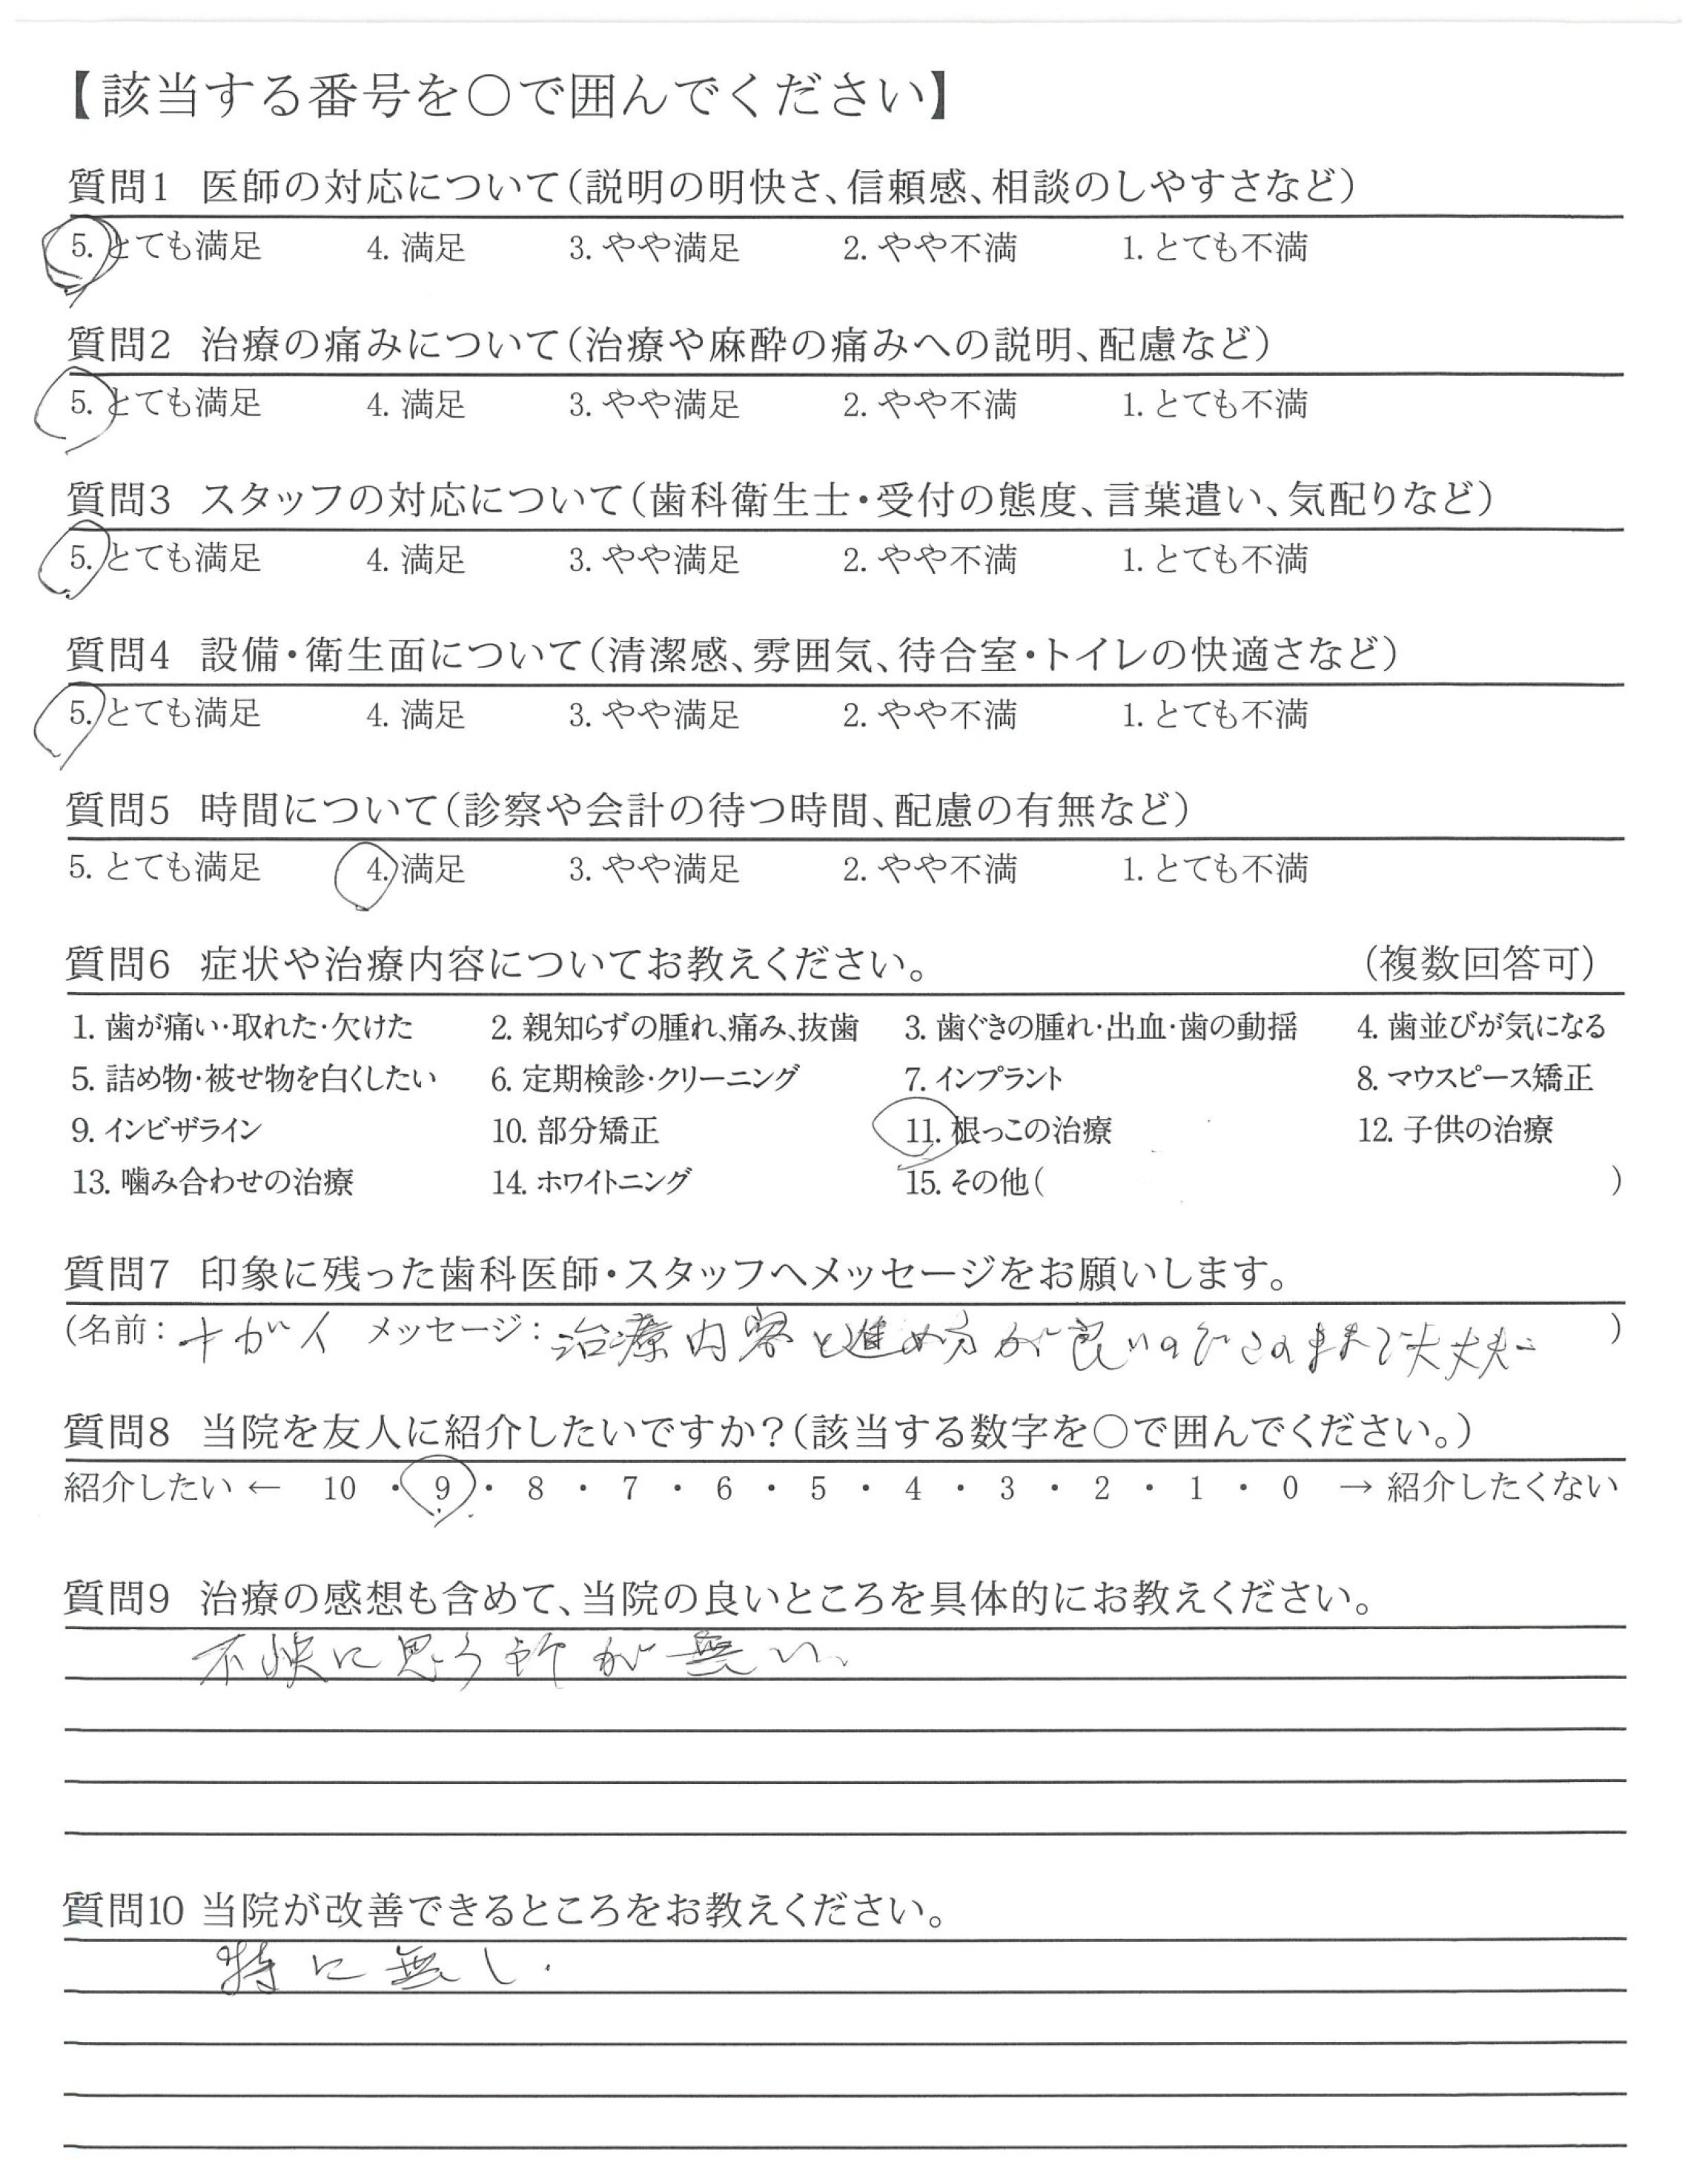 【該当する番号を○で囲んでください】
質問1 医師の対応について(説明の明快さ、信頼感、相談のしやすさなど)
5. とても満足 4. 満足 3. やや満足 2. やや不満 1. とても不満
質問2 治療の痛みについて(治療や麻酔の痛みへの説明、配慮など)
5. とても満足 4. 満足 3. やや満足 2. やや不満 1. とても不満
質問3 スタッフの対応について(歯科衛生士・受付の態度、言葉遣い、気配りなど)
5. とても満足 4. 満足 3. やや満足 2. やや不満 1. とても不満
質問4 設備・衛生面について(清潔感、雰囲気、待合室・トイレの快適さなど)
5. とても満足 4. 満足 3. やや満足 2. やや不満 1. とても不満
質問5 時間について(診察や会計の待つ時間、配慮の有無など)
5. とても満足 4. 満足 3. やや満足 2. やや不満 1. とても不満
質問6 症状や治療内容についてお教えください。 (複数回答可)
1. 歯が痛い・取れた・欠けた 2. 親知らずの腫れ、痛み、抜歯 3. 歯ぐきの腫れ・出血・歯の動揺 4. 歯並びが気になる
5. 詰め物・被せ物を白くしたい 6. 定期検診・クリーニング 7. インプラント 8. マウスピース矯正
9. インビザライン 10. 部分矯正 11. 根っこの治療 12. 子供の治療
13. 噛み合わせの治療 14. ホワイトニング 15. その他( )
質問7 印象に残った歯科医師・スタッフへメッセージをお願いします。
(名前: メッセージ: 治療内容と進め方が良いのでこのままで大丈夫 )
質問8 当院を友人に紹介したいですか?(該当する数字を○で囲んでください。)
紹介したい ← 10 ・ 9 ・ 8 ・ 7 ・ 6 ・ 5 ・ 4 ・ 3 ・ 2 ・ 1 ・ 0 → 紹介したくない
質問9 治療の感想も含めて、当院の良いところを具体的にお教えください。
不快に思う所が無い、
質問10 当院が改善できるところをお教えください。
特に無し.